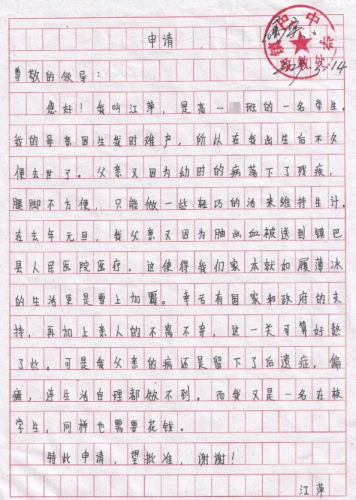 申请
尊敬的领导：
您好！我叫江萍，是高一班的一名学生。
我的母亲因生我时难产，所以在我出生后不久
便去世了。父亲又因为幼时的病落下了残疾，
腿脚不方便，只能做一些轻巧的活来维持生计。
在去年元旦，我父亲又因为脑出血被送到镇巴
县人民医院医疗。这使得我们家本就如履薄冰
的生活更是雪上加霜。幸亏有国家和政府的支
持，再加上亲人的不离不弃，这一关可算好熬
了些。可是我父亲的病还是留下了后遗症，偏
瘫，连生活自理都做不到。而我又是一名在校
学生，同样也需要花钱。
特此申请，望批准，谢谢！
江萍
镇巴中学